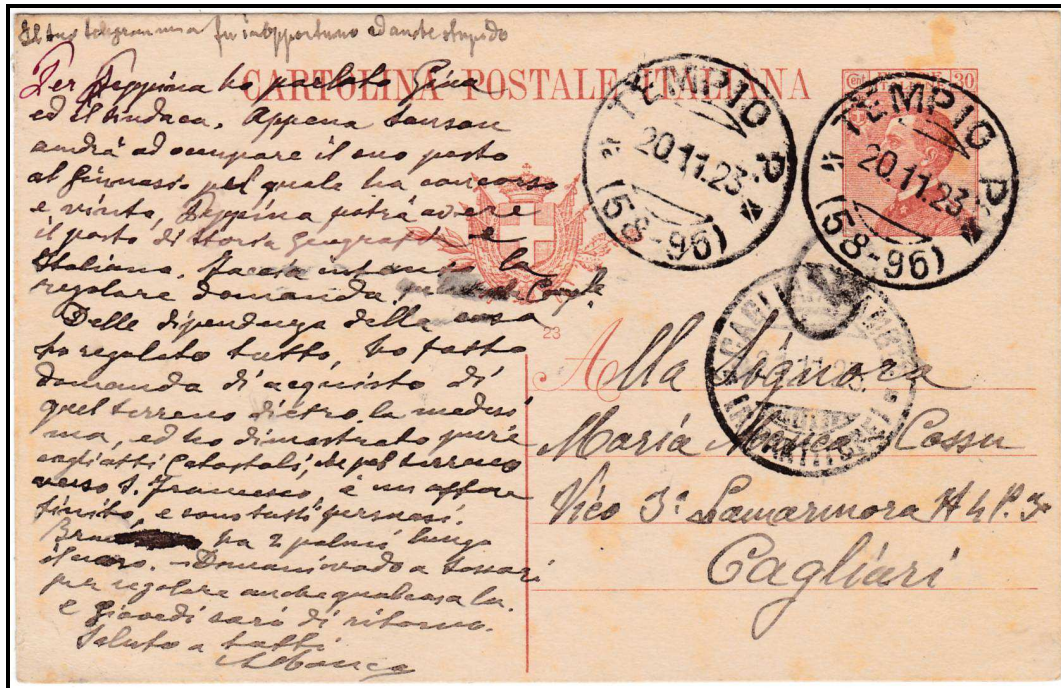 Il tuo telegramma fu inopportuno ed anche stupido
CARTOLINA POSTALE ITALIANA
Per Peppina ho parlato Gina
ed il sindaco. Appena
andrà ad occupare il suo posto
al Ginnasio pel quale ha concorso
e vinto, Peppina potrà avere
il posto di Storia Geografia e
Italiana. Faccia intanto la
regolare domanda,
Delle dipendenze della casa
ho regolato tutto, ho fatto
domanda di acquisto di
quel terreno dietro la medesi
ma, ed ho dimostrato pure
cogli atti Catastali, che pel terreno
verso S. Francesco, è un affare
finito, e sono tutti persuasi.
ha 2 palmi lungo
il naso. - Domani vado a Sassari
per regolare anche qualcosa là.
e Giovedì sarò di ritorno.
Saluto a tutti
TEMPIO P.
20.11.23
(58-96)
Cent
30
TEMPIO P.
20.11.23
(58-96)
CAGLI
11.23
23
Alla Signora
Maria Cossu
Vico 3º Lamarmora N 4 P. 3º
Cagliari